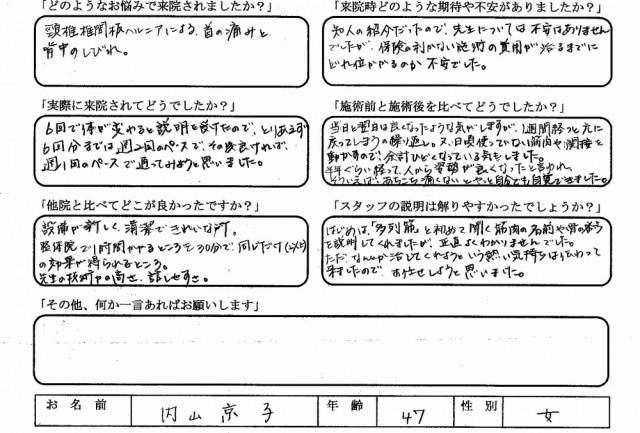 「どのようなお悩みで来院されましたか？」
頸椎椎間板ヘルニアによる、首の痛みと
背中のしびれ。
「来院時どのような期待や不安がありましたか？」
知人の紹介だったので、先生については不安はありません
でしたが、保険の利かない施術の費用が治るまでに
どれ位かかるのか不安でした。
「実際に来院されてどうでしたか？」
6回で体が変わると説明を受けたので、とりあえず
6回分までは週2回のペースで、その後良ければ、
週1回のペースで通ってみようと思いました。
「施術前と施術後を比べてどうでしたか？」
当日と翌日は良くなったような気がしますが、1週間経つと元に
戻ってしまうの繰り返し。又、日頃使っていない筋肉や関節を
動かすので、余計ひどくなっている気もしました。
半年ぐらい経って、人から姿勢が良くなったと言われ、
そういえば、あちこち痛くないとやっと自分でも自覚できました。
「他院と比べてどこが良かったですか？」
設備が新しく、清潔できれいな所。
整体院で1時間かかるところを30分で、同じだけ(以上)
の効果が得られるところ。
先生の技術力の高さ、話しやすさ。
「スタッフの説明は解りやすかったでしょうか？」
はじめは、「多裂筋」と初めて聞く筋肉の名前や骨の事
を説明してくれましたが、正直よくわかりませんでした。
ただ、なんか治してくれようという熱い気持ちは伝わって
来ましたので、お任せしようと思いました。
「その他、何か一言あればお願いします」
お名前 内山京子 年齢 47 性別 女